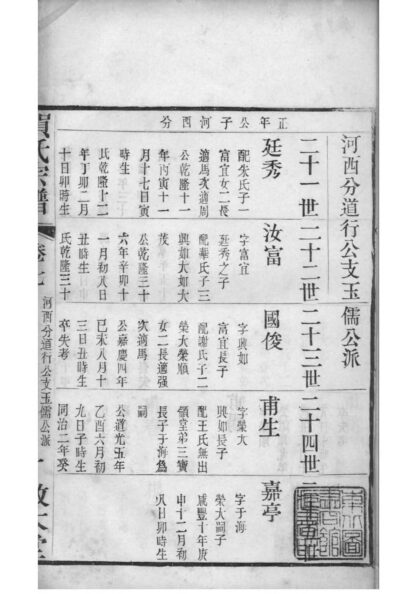 正年公子河西分
河西分道行公支玉儒公派
二十一世二十二世二十三世二十四世二
廷秀
配朱氏子一
富宜女二長
適馬次適周
公乾隆十一
年丙寅十一
月十七日寅
時生
氏乾隆十二
年丁卯二月
十日卯時生
汝富
字富宜
廷秀之子
配華氏子三
興如大如大
茂
公乾隆三十
六年辛卯十
一月初八日
丑時生
氏乾隆三十
國俊
字興如
富宜長子
配謝氏子二
榮大榮順
女二長適强
次適馬
公嘉慶四年
己未八月十
三日丑時生
卒失考
甫生
字榮大
興如長子
配王氏無出
領堂弟三寶
長子于海為
嗣
公道光五年
乙酉六月初
九日子時生
同治二年癸
嘉亭
字于海
榮大嗣子
咸豐十年庚
申十二月初
八日卯時生
氏宗譜
卷七
河西分道行公支玉儒公派